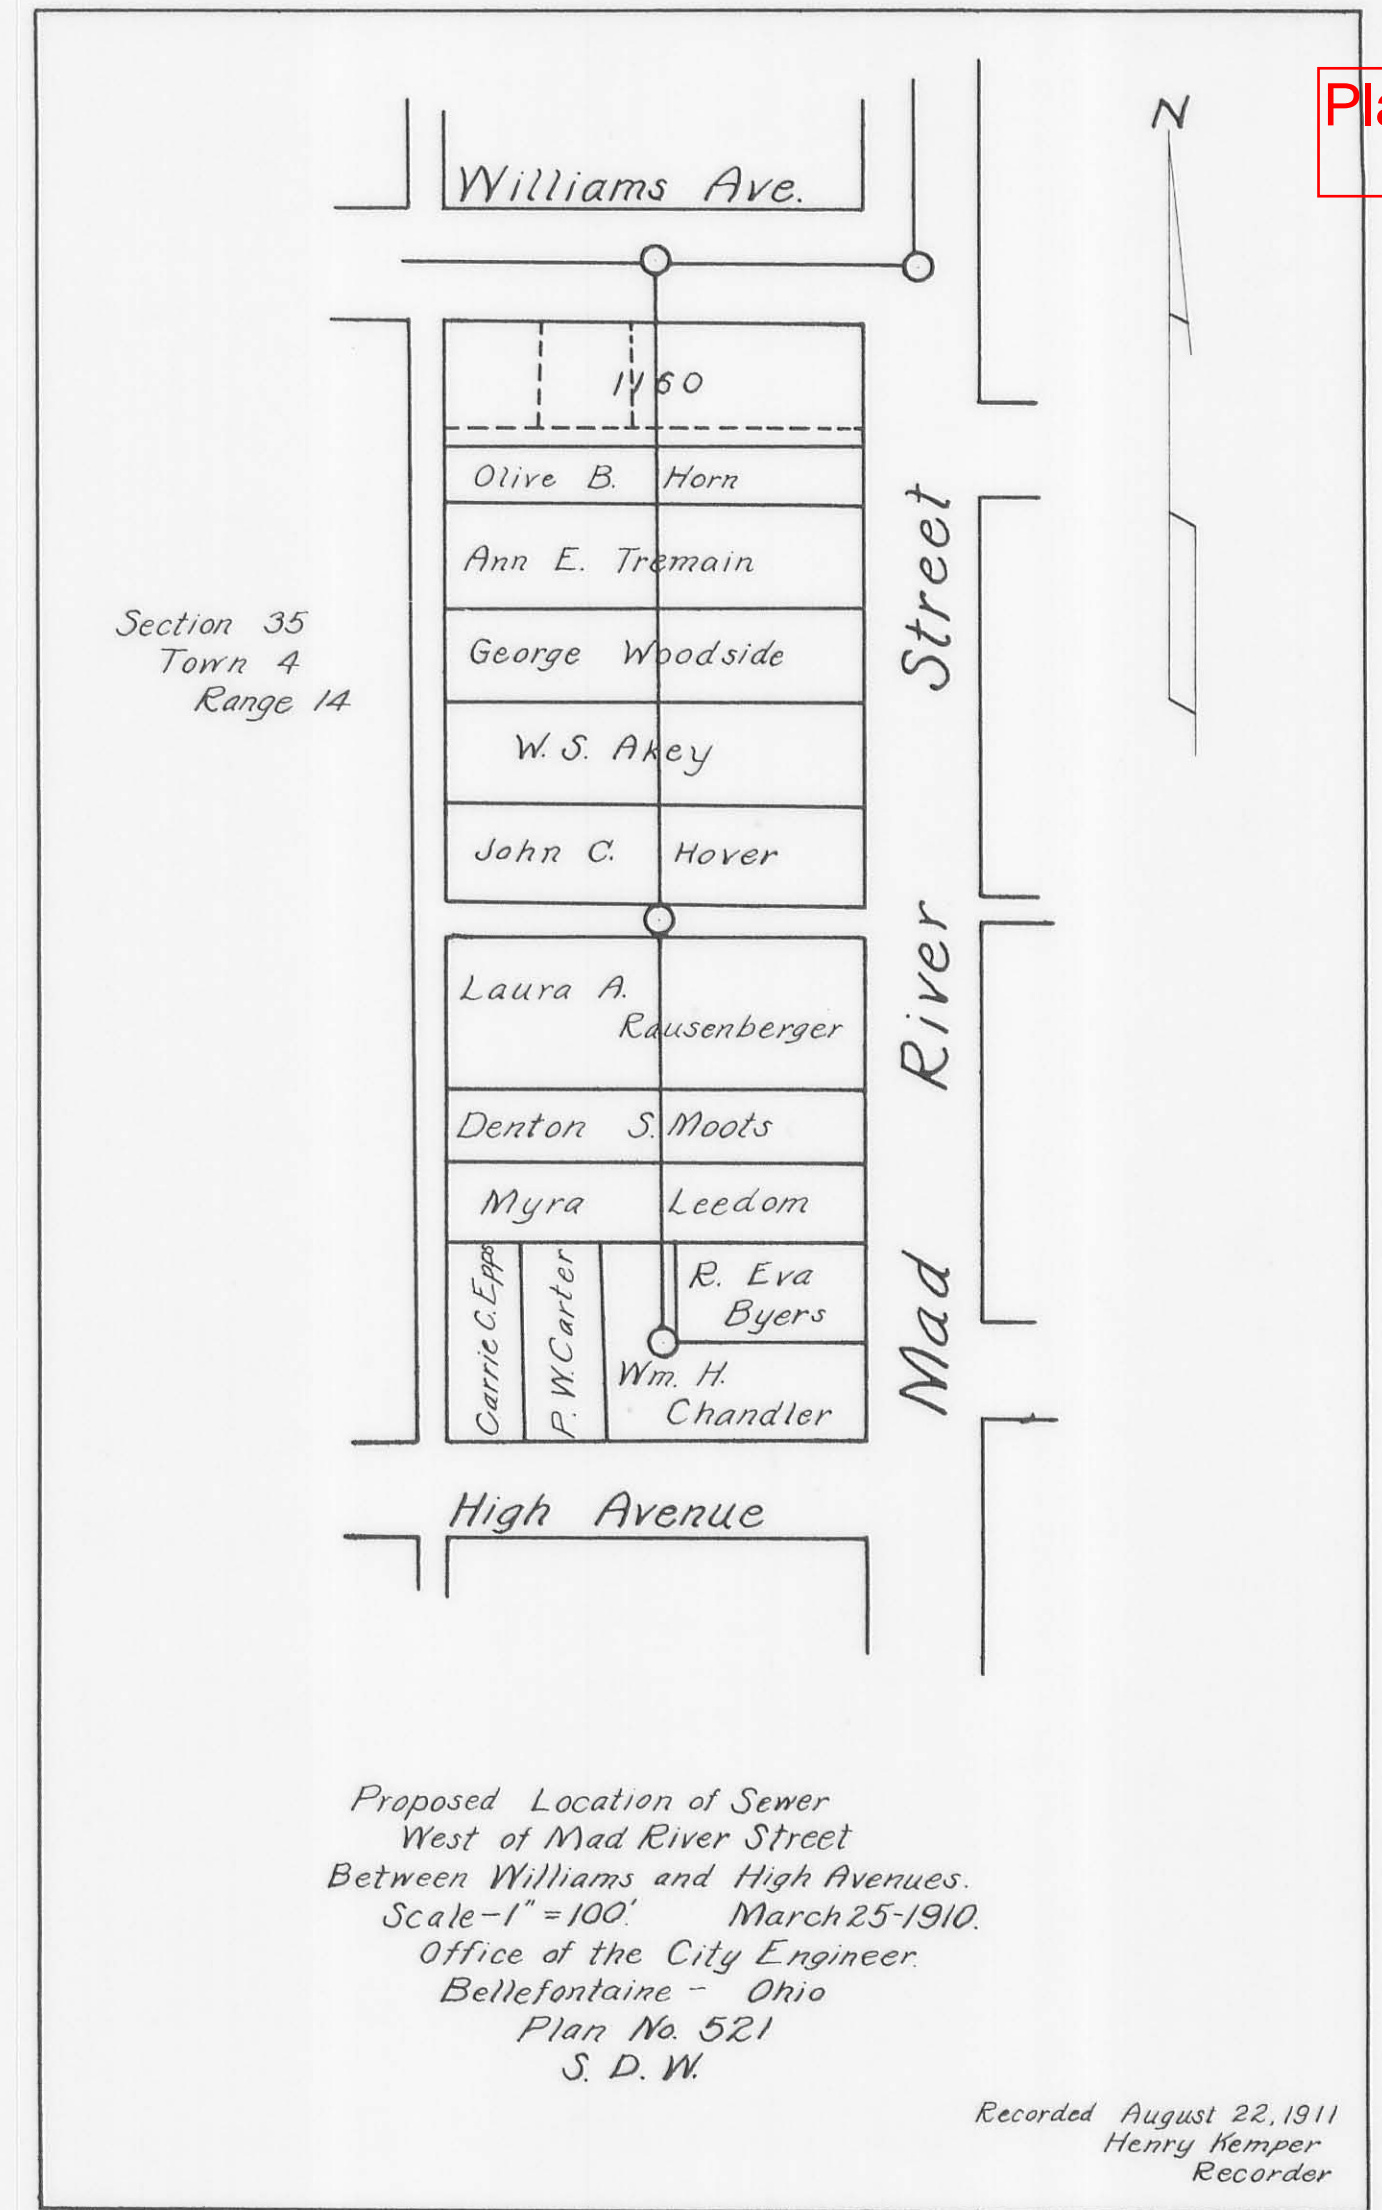 N
Williams Ave.
1160
Olive B. Horn
Ann E. Tremain
George Woodside
W. S. Akey
John C. Hover
Section 35
Town 4
Range 14
Laura A.
Rausenberger
Denton S. Moots
Myra Leedom
Carrie C. Epps
P. W. Carter
R. Eva
Byers
Wm. H.
Chandler
Mad River Street
High Avenue
Proposed Location of Sewer
West of Mad River Street
Between Williams and High Avenues.
Scale-1"=100' March 25-1910.
Office of the City Engineer.
Bellefontaine - Ohio
Plan No. 521
S. D. W.
Recorded August 22, 1911
Henry Kemper
Recorder